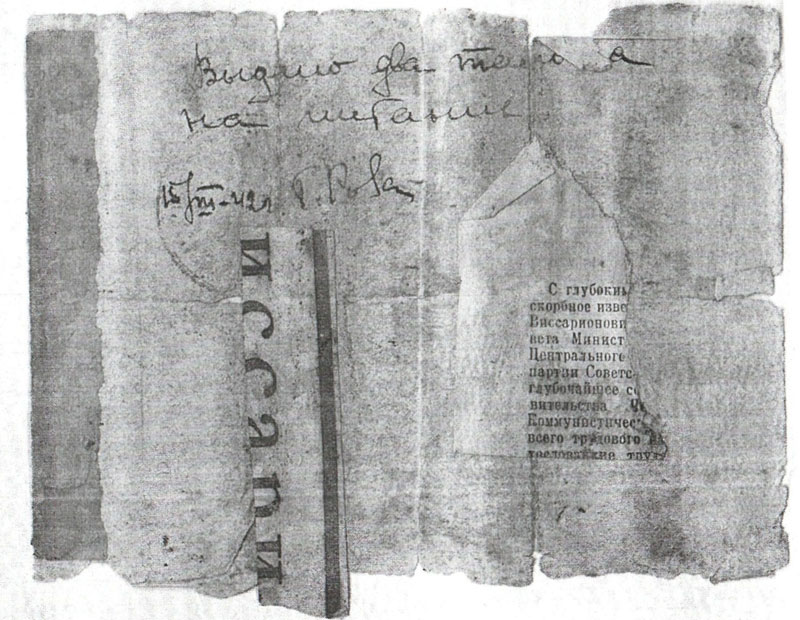 Выдано два
на питание
15/III-42г
иссари
С глубоким
скорбное изве
Виссарионови
вета Минист
Центрального
партии Советс
глубочайшее со
вительства Че
Коммунистичес
всего трудового
тословакия труд